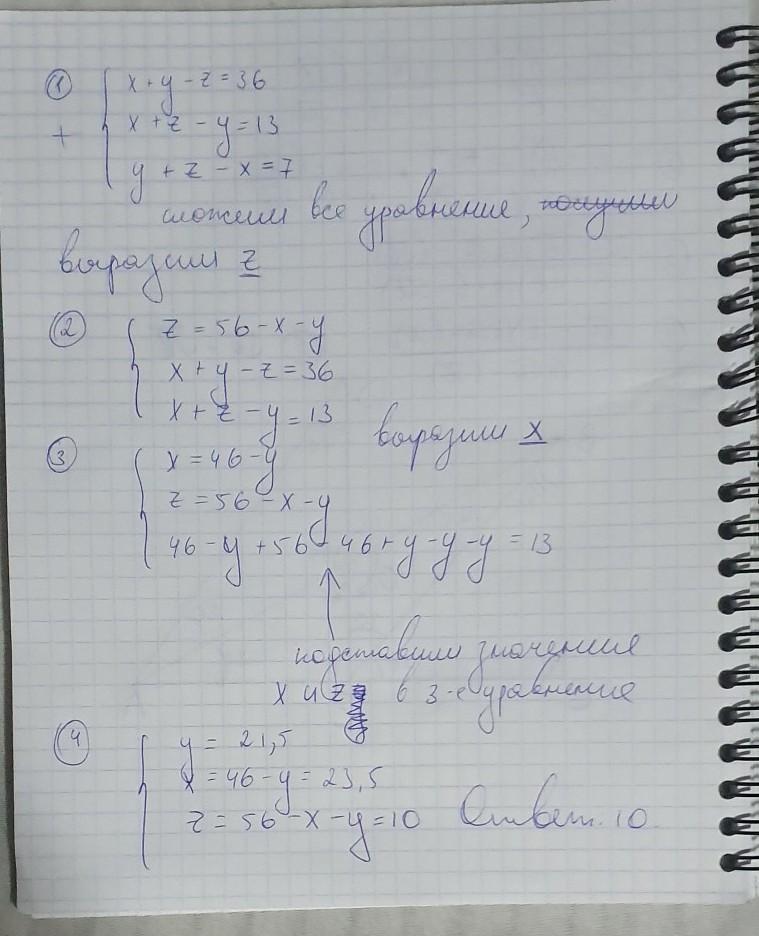 ① x+y-z=36
+ x+z-y=13
y+z-x=7
сложим все уравнение,
выразим z
② z=56-x-y
x+y-z=36
x+z-y=13
выразим x
③ x=46-y
z=56-x-y
46-y+56-46+y-y-y=13
подставили значения
x и z в 3-е уравнение
④ y=21,5
x=46-y=23,5
z=56-x-y=10 Ответ. 10